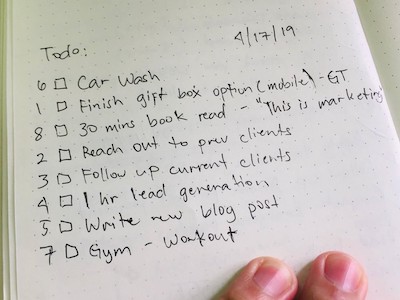 4/17/19
Todo:
6 □ Car Wash
1 □ Finish gift box option (mobile) - GT
8 □ 30 mins book read - "This is marketing"
2 □ Reach out to prev clients
3 □ Follow up current clients
4 □ 1 hr lead generation
5 □ Write new blog post
7 □ Gym - Workout